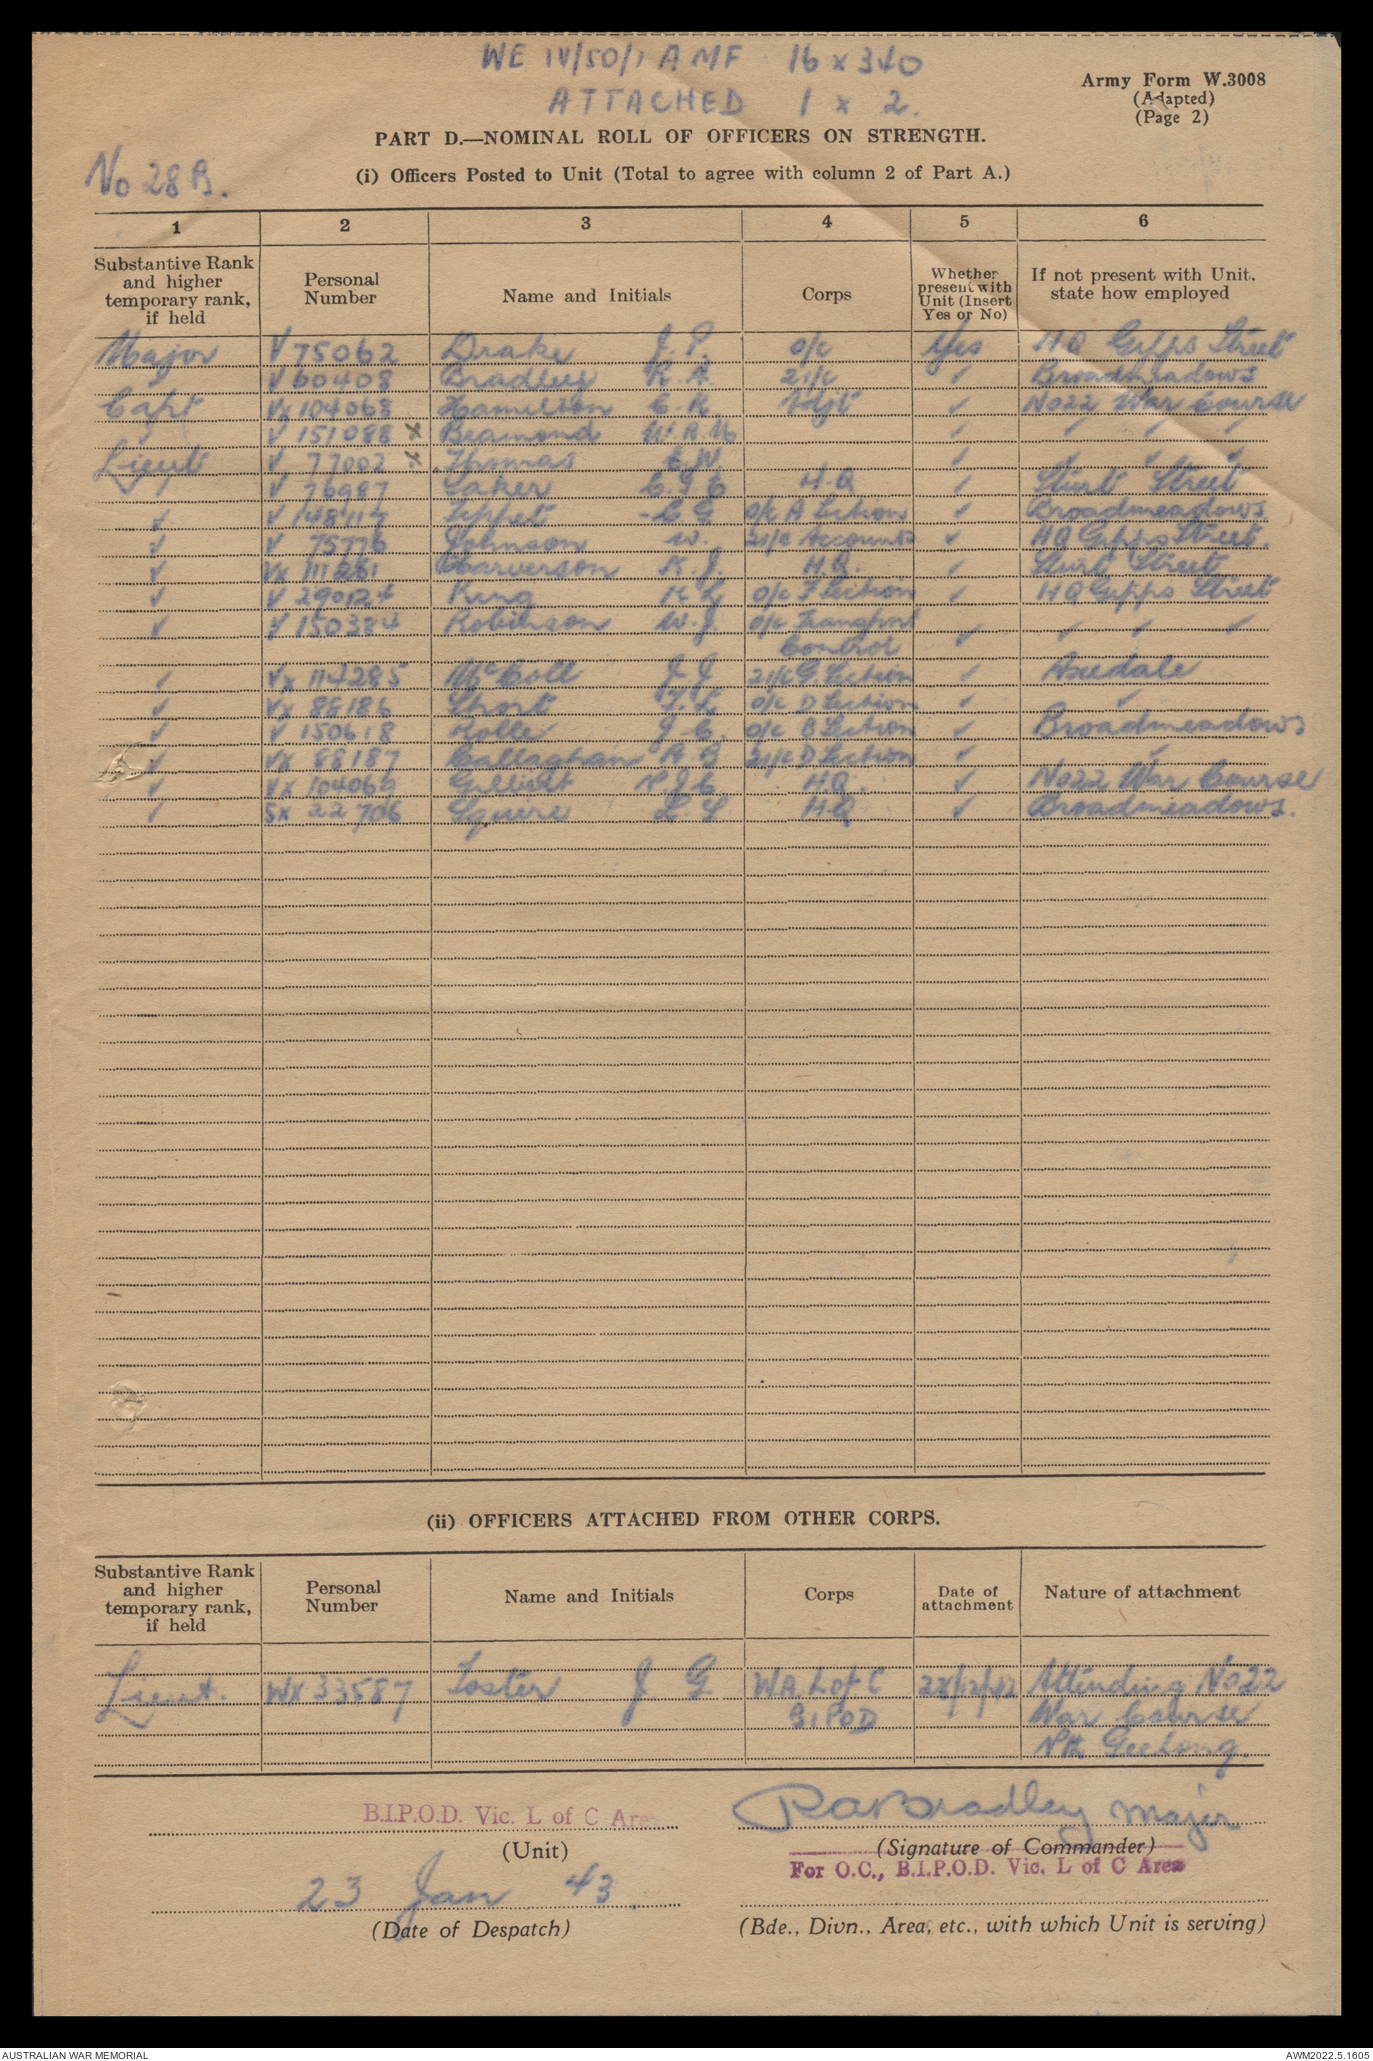 WE IV/50/1 AMF 16 x 340
ATTACHED 1 x 2.
Army Form W.3008
(Adapted)
(Page 2)
PART D.—NOMINAL ROLL OF OFFICERS ON STRENGTH.
No 28B.
(i) Officers Posted to Unit (Total to agree with column 2 of Part A.)
1 2 3 4 5 6
Substantive Rank and higher temporary rank, if held
Personal Number
Name and Initials
Corps
Whether present with Unit (Insert Yes or No)
If not present with Unit, state how employed
Major V 75062 Drake J. P. o/c Yes HQ Gipps Street
V 60408 Bradley R. A. 2i/c ✓ Broadmeadows
Capt VX 104068 Hamilton C. R. Adjt ✓ No 22 War Course
✓ V 151088 x Beamond W. A. ✓ ✓ ✓ ✓
Lieut V 77002 x Thomas E. W. ✓ ✓ ✓ ✓
✓ V 76987 Laker C. G. C H.Q ✓ Sturt Street
✓ V Tippet C G o/c A Section ✓ Broadmeadows
✓ V 75776 Johnson W. 2i/c Accounts ✓ HQ Gipps Street.
✓ VX 111261 Harverson K. J. H.Q. ✓ Sturt Street
✓ V 290124 King o/c F Section ✓ HQ Gipps Street
✓ V 150384 Robinson W. J. o/c Transport ✓ ✓ ✓
Control ✓
✓ VX 114285 McColl J J 2i/c G. Section ✓ Axedale
✓ VX 88186 Short o/c D Section ✓ ✓
✓ V 150618 Rolle J. C. o/c B Section ✓ Broadmeadows
✓ VX 88187 Callaghan R. G 2i/c D Section ✓ ✓
✓ VX 104066 Gilbert H.Q. ✓ No 22 War Course
✓ SX 22706 Squire H.Q ✓ Broadmeadows.
(ii) OFFICERS ATTACHED FROM OTHER CORPS.
Substantive Rank and higher temporary rank, if held
Personal Number
Name and Initials
Corps
Date of attachment
Nature of attachment
Lieut. WX 33587 Foster J G WA L of C 22/12/42 Attending No 22
BIPOD War Course
Nth Geelong.
B.I.P.O.D. Vic. L of C Area
RABradley Major
(Unit)
(Signature of Commander)
For O.C., B.I.P.O.D. Vic. L of C Area
23 Jan 43.
(Date of Despatch)
(Bde., Divn., Area, etc., with which Unit is serving)
AUSTRALIAN WAR MEMORIAL
AWM2022.5.1605